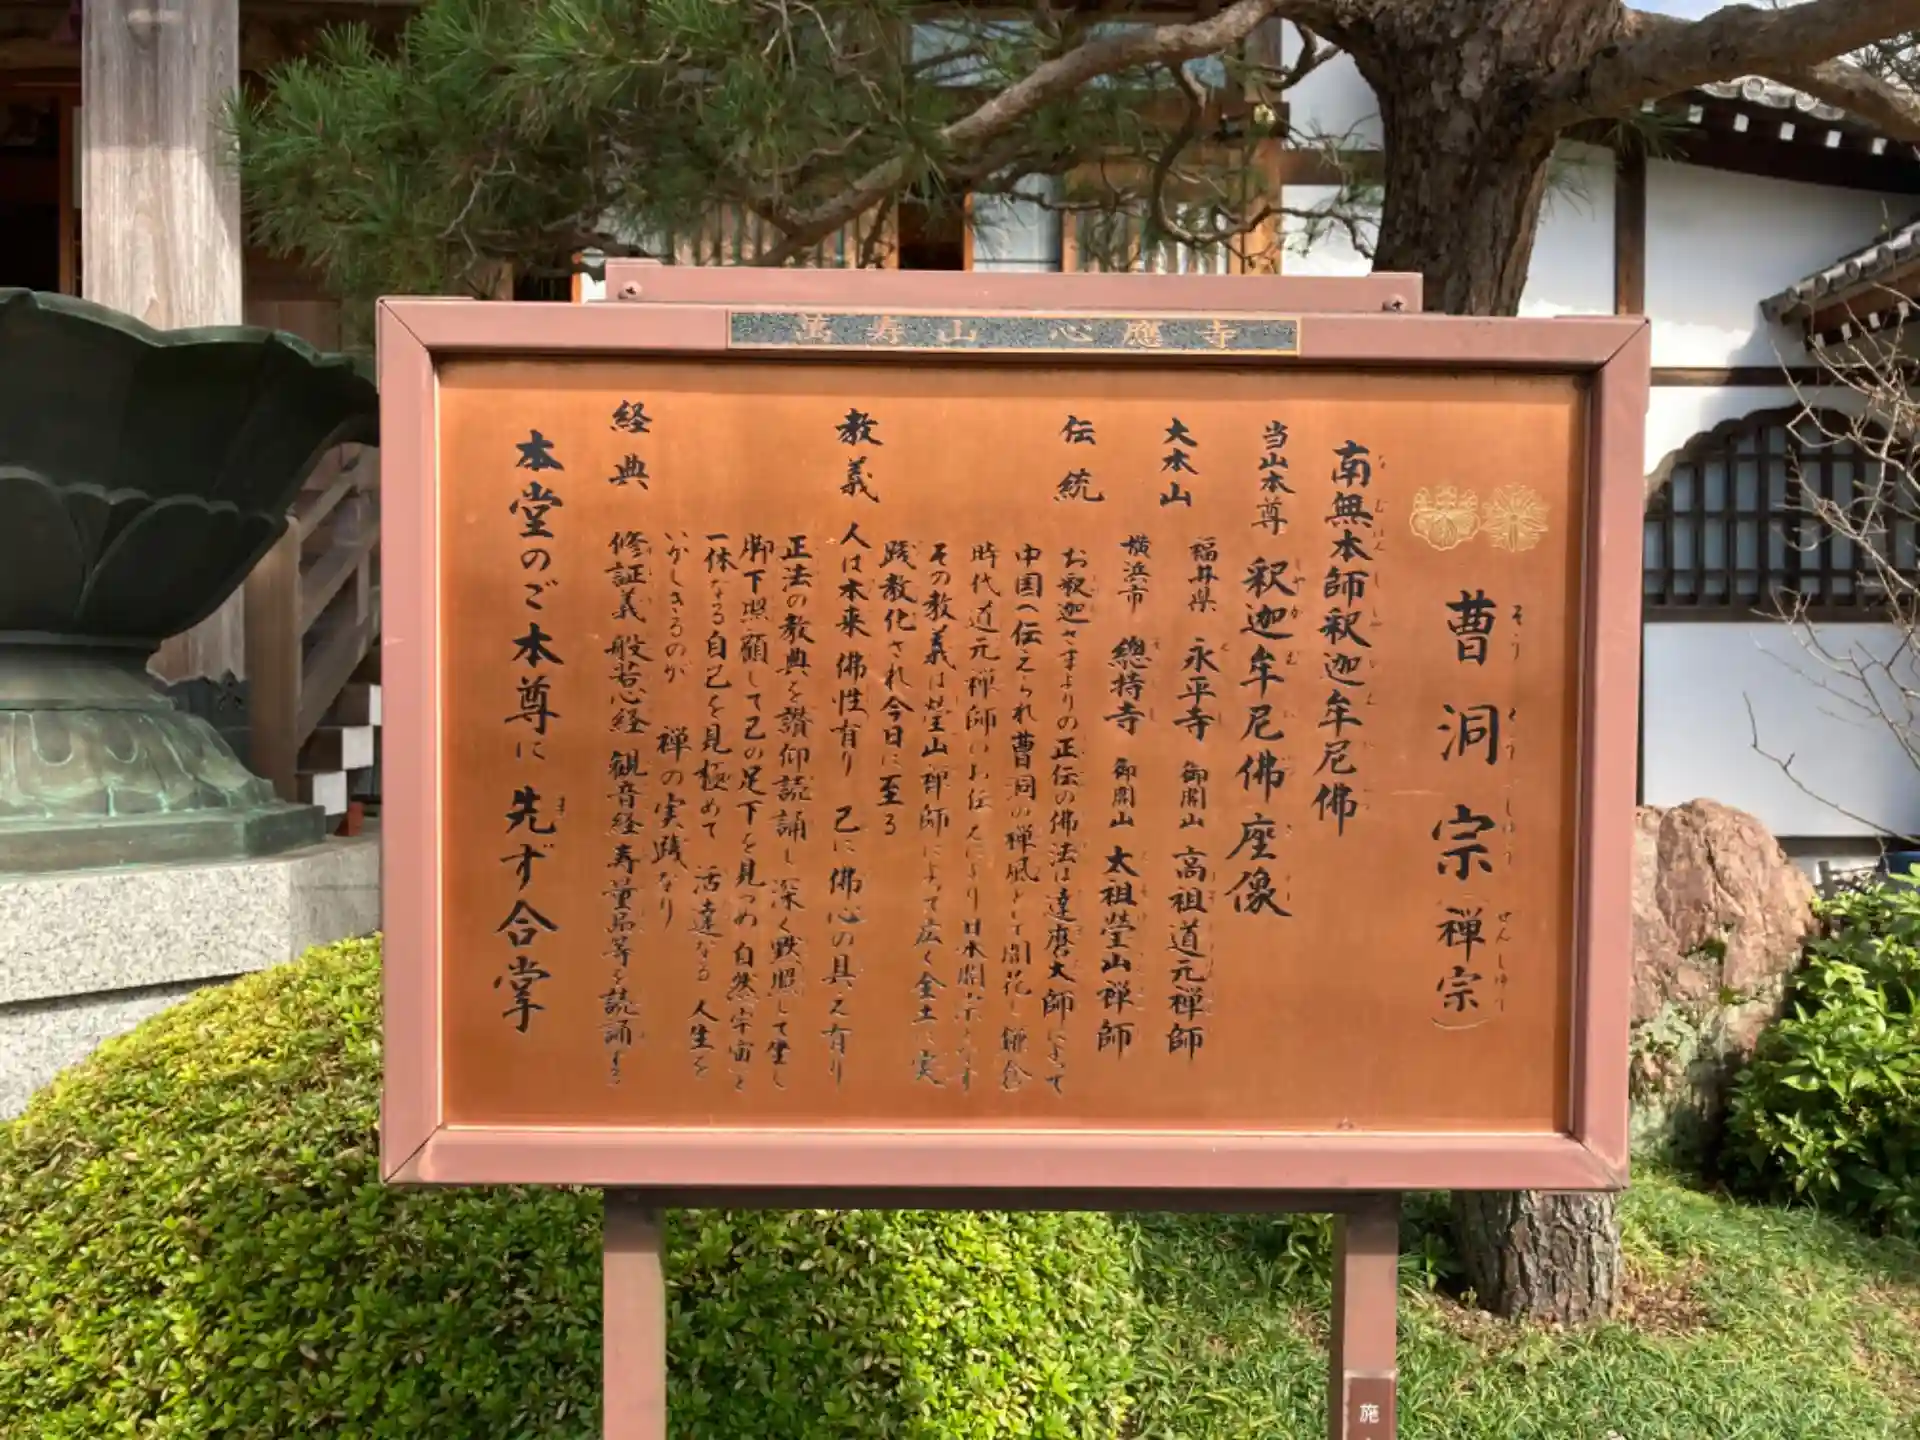 萬寿山 心應寺
曹洞宗(禅宗)
そうとうしゅう ぜんしゅう
南無本師釈迦牟尼佛
当山本尊 釈迦牟尼佛座像
大本山 福井県 永平寺 御開山 高祖道元禅師
横浜市 總持寺 御開山 太祖瑩山禅師
伝統 お釈迦さまよりの正伝の佛法は達磨大師によって
中国へ伝えられ曹洞の禅風として開花し鎌倉
時代道元禅師のお伝えにより日本開宗となす
その教義は瑩山禅師によって広く全土に実
践教化され今日に至る
教義 人は本来佛性有り 己に佛心の具え有り
正法の教典を讃仰読誦し深く黙照して坐し
脚下照顧して己の足下を見つめ自然宇宙と
一体なる自己を見極めて 活達なる人生を
いかしきるのが 禅の実践なり
経典 修証義 般若心経 観音経 寿量品等を読誦する
本堂のご本尊に 先ず合掌
施